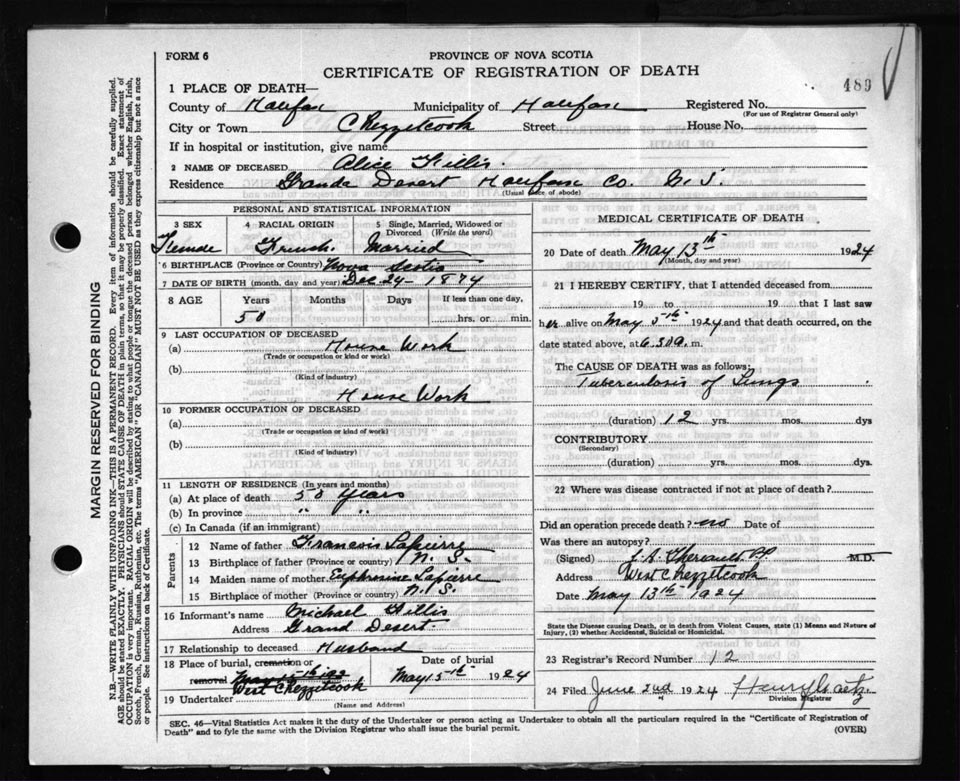 FORM 6
PROVINCE OF NOVA SCOTIA
CERTIFICATE OF REGISTRATION OF DEATH
489
1 PLACE OF DEATH—
County of Halifax Municipality of Halifax Registered No.
(For use of Registrar General only)
City or Town Chezzetcook Street House No.
If in hospital or institution, give name
2 NAME OF DECEASED Alice Fillis
Residence Grande Desert Halifax Co. N.S.
(Usual place of abode)
PERSONAL AND STATISTICAL INFORMATION
3 SEX 4 RACIAL ORIGIN 5 Single, Married, Widowed or Divorced (Write the word)
Female French Married
6 BIRTHPLACE (Province or Country) Nova Scotia
7 DATE OF BIRTH (month, day and year) Dec 29 - 1874
8 AGE Years Months Days If less than one day,
50 hrs. or min.
9 LAST OCCUPATION OF DECEASED
(a) House Work
(Trade or occupation or kind of work)
(b)
(Kind of industry)
House Work
10 FORMER OCCUPATION OF DECEASED
(a)
(Trade or occupation or kind of work)
(b)
(Kind of industry)
11 LENGTH OF RESIDENCE (In years and months)
(a) At place of death 50 Years
(b) In province " "
(c) In Canada (if an immigrant)
Parents
12 Name of father Francois Lapierre
13 Birthplace of father (Province or country) N.S.
14 Maiden name of mother Lapierre
15 Birthplace of mother (Province or country) N.S.
16 Informant's name Michael Fillis
Address Grand Desert
17 Relationship to deceased Husband
18 Place of burial, cremation or removal May 15th 192
West Chezzetcook
Date of burial
May 15th 1924
19 Undertaker
(Name and Address)
MEDICAL CERTIFICATE OF DEATH
20 Date of death May 13th 1924
(Month, day and year)
21 I HEREBY CERTIFY, that I attended deceased from
19 to 19 that I last saw
her alive on May 5th 1924 and that death occurred, on the
date stated above, at 6.30 a.m.
The CAUSE OF DEATH was as follows:
Tuberculosis of Lungs
(duration) 12 yrs. mos. dys
CONTRIBUTORY
(Secondary)
(duration) yrs. mos. dys.
22 Where was disease contracted if not at place of death?
Did an operation precede death? no Date of
Was there an autopsy?
(Signed) J.A. Theriault PP M.D.
Address West Chezzetcook
Date May 13th 1924
State the Disease causing Death, or in death from Violent Causes, state (1) Means and Nature of Injury, (2) whether Accidental, Suicidal or Homicidal.
23 Registrar's Record Number 12
24 Filed June 2nd 1924 Henry
Division Registrar
SEC. 46—Vital Statistics Act makes it the duty of the Undertaker or person acting as Undertaker to obtain all the particulars required in the "Certificate of Registration of
Death" and to fyle the same with the Division Registrar who shall issue the burial permit. (OVER)
MARGIN RESERVED FOR BINDING
N.B.—WRITE PLAINLY WITH UNFADING INK—THIS IS A PERMANENT RECORD. Every item of information should be carefully supplied.
AGE should be stated EXACTLY. PHYSICIANS should STATE CAUSE OF DEATH in plain terms, so that it may be properly classified. Exact statement of
OCCUPATION is very important. RACIAL ORIGIN will be described by stating to what people or tongue the deceased person belonged, whether English, Irish,
Scotch, French, German, Russian, Ruthenian, etc. The terms "AMERICAN" OR "CANADIAN" MUST NOT BE USED as they express citizenship but not a race
or people. See instructions on back of Certificate.